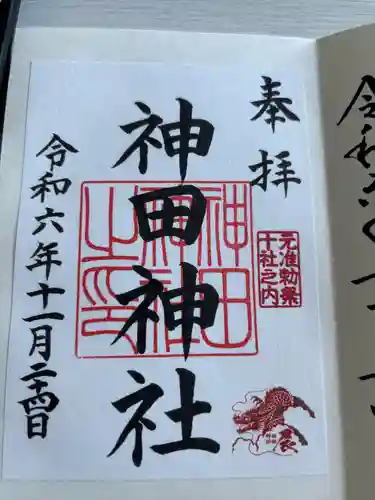 奉拝
元准勅祭
十社之内
神田神社
神田
神社
之印
令和六年十一月二十四日
辰